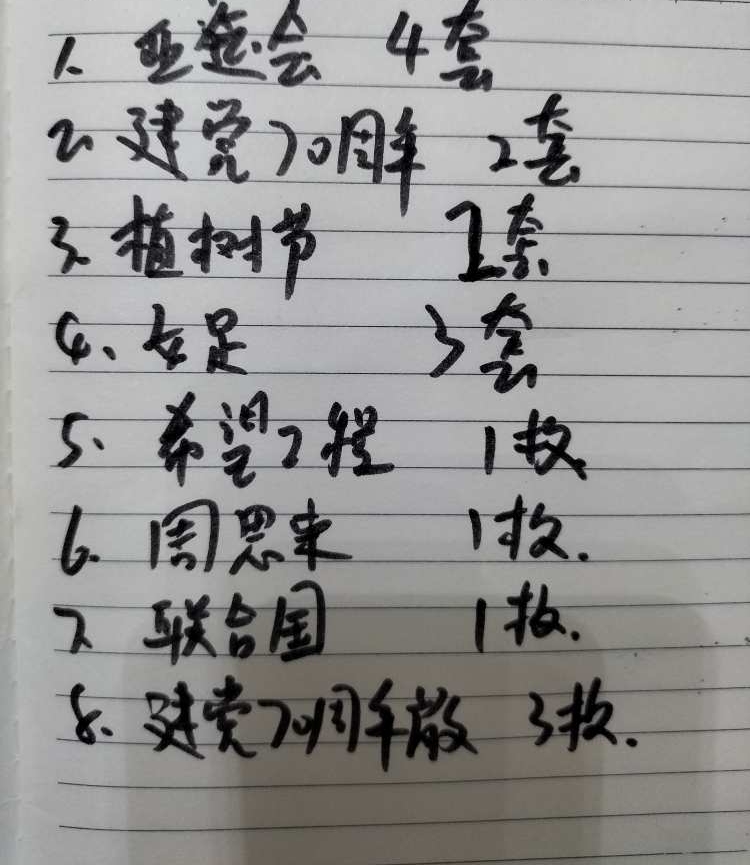 1. 亚运会 4套
2. 建党70周年 2套
3. 植树节 1套
4、女足 3套
5. 希望工程 1枚
6. 周恩来 1枚.
7 联合国 1枚.
8. 建党70周年散 3枚.